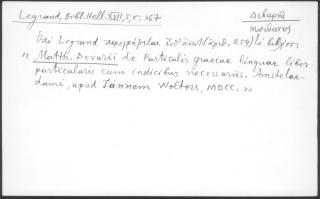 Legrand, Bibl. Hell. XVII, 5, σ. 167
Δεβαρῆς
Ματθαῖος
Ὑπὸ Legrand
" Matth. Devarii de Particulis graecae linguae liber
particularis cum indicibus necessariis. Amstelae-
dami, apud Iannem Wolters, MDCC. »